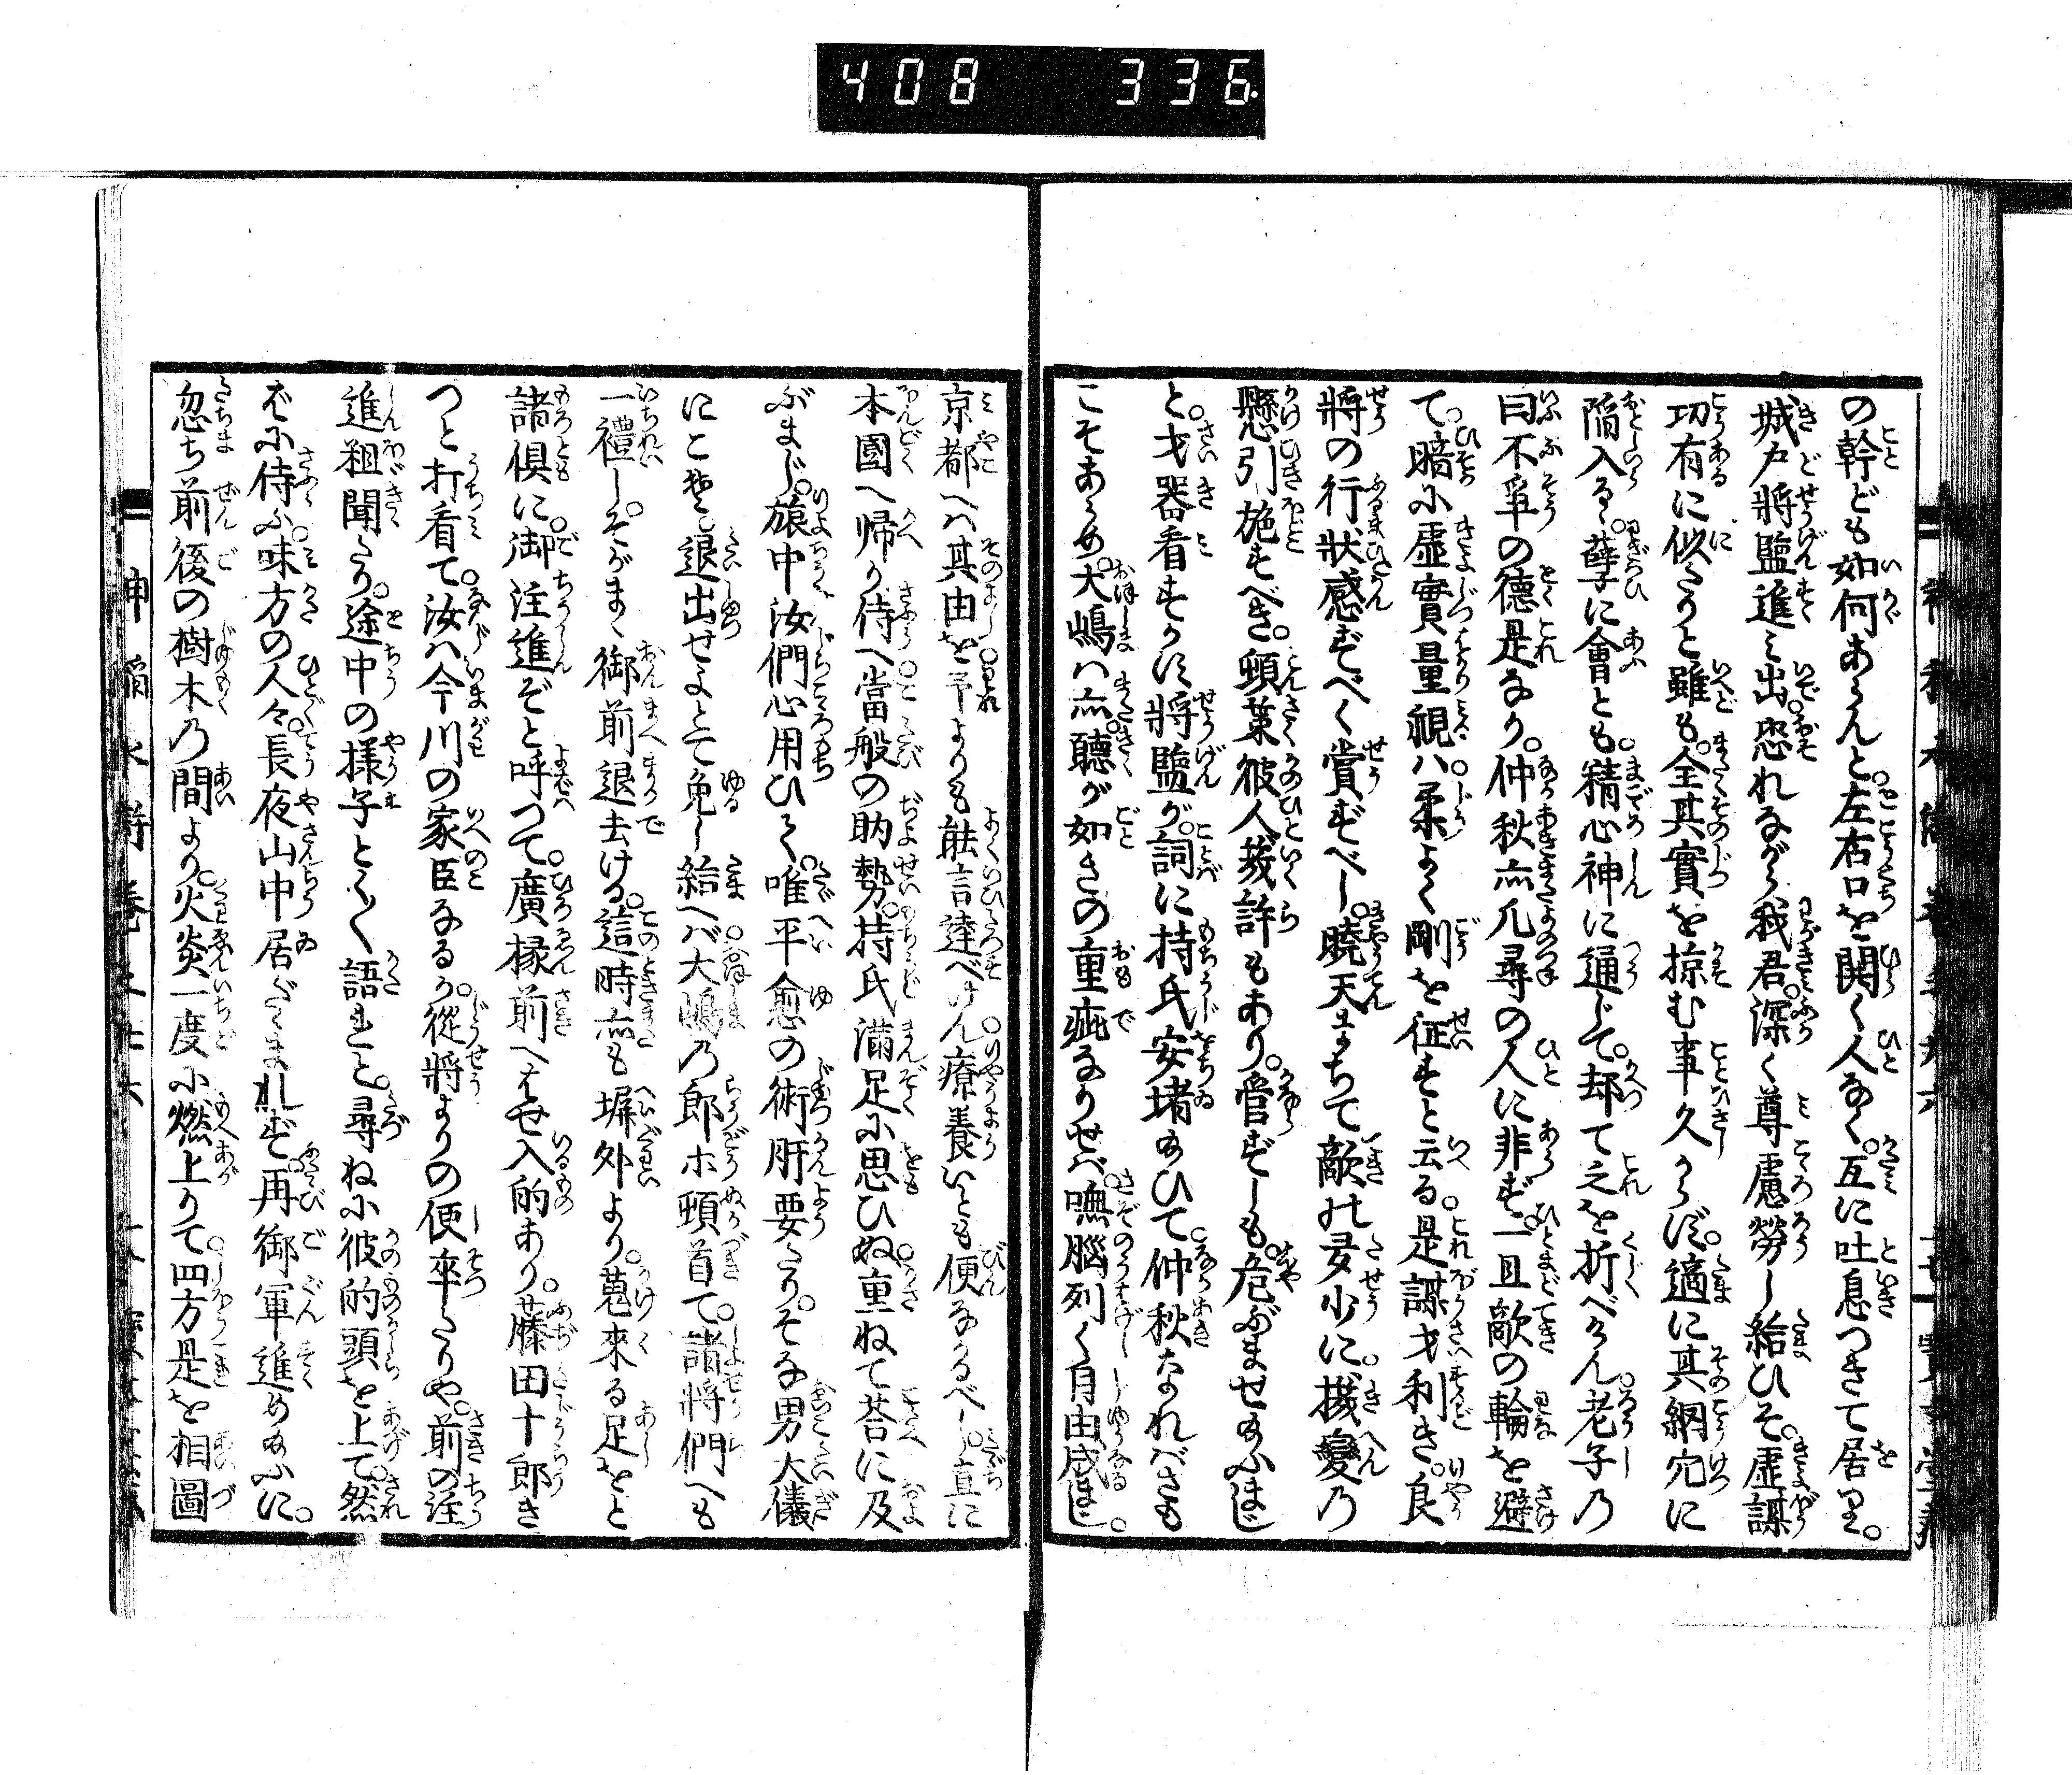 408 336
の幹ども如何あらんと。左右口を開く人なく。互に吐息つきて居ゐる。
城戸將監進み出。恐れながら我君。深く尊慮勞し給ひそ。虚謀
功有に似たりと雖も。全其實を掠む事久からず。適に其網穴に
陥入る。孽に會とも。精心神に通じて。却て之を折べけん。老子の
曰不爭の徳是なり。仲秋亦凡尋の人に非ず。一旦敵の輪を避
て。暗に虚實量視ハ。柔よく剛を征すと云る。是謀才利き。良
將の行状感ずべく賞ずべし。曉天まちて敵の多少に。機變の
懸引施すべき。頓策彼人幾許もあり。管ずしも。危ぶませ給ふまじ
と。才器看するに將監が。詞に持氏安堵給ひて。仲秋なればさも
こそあらめ。大嶋ハ亦。聽が如きの重疵なりせば。嘸腦烈く自由成まじ。
京都へハ其由を。予よりも能言達べけん。療養いとも便なかるべし。直に
本國へ帰り侍へ。當般の助勢。持氏満足に思ひぬ。重ねて荅に及
ぶまじ。旅中汝們心用ひて。唯平愈の術肝要たり。そな男大儀
にこそ。退出せよとて免し給へバ。大嶋の郎ホ頓首て。諸將們へも
一禮し。そがまゝ御前退去ける。這時亦も塀外より。蒐來る足をと
諸倶に。御注進ぞと呼つて。廣椽前へはせ入的あり。藤田十郎き
つと打看て。汝ハ今川の家臣なるか。從將よりの便卒たりや。前の注
進粗聞たり。途中の樣子とく〳〵語れと。尋ねに彼的頭を上て。然
ばに侍ふ。味方の人々。長夜山中居だまれず。再御軍進め給ふに。
忽ち前後の樹木の間より。火炎一度に燃上りて。四方是を相圖